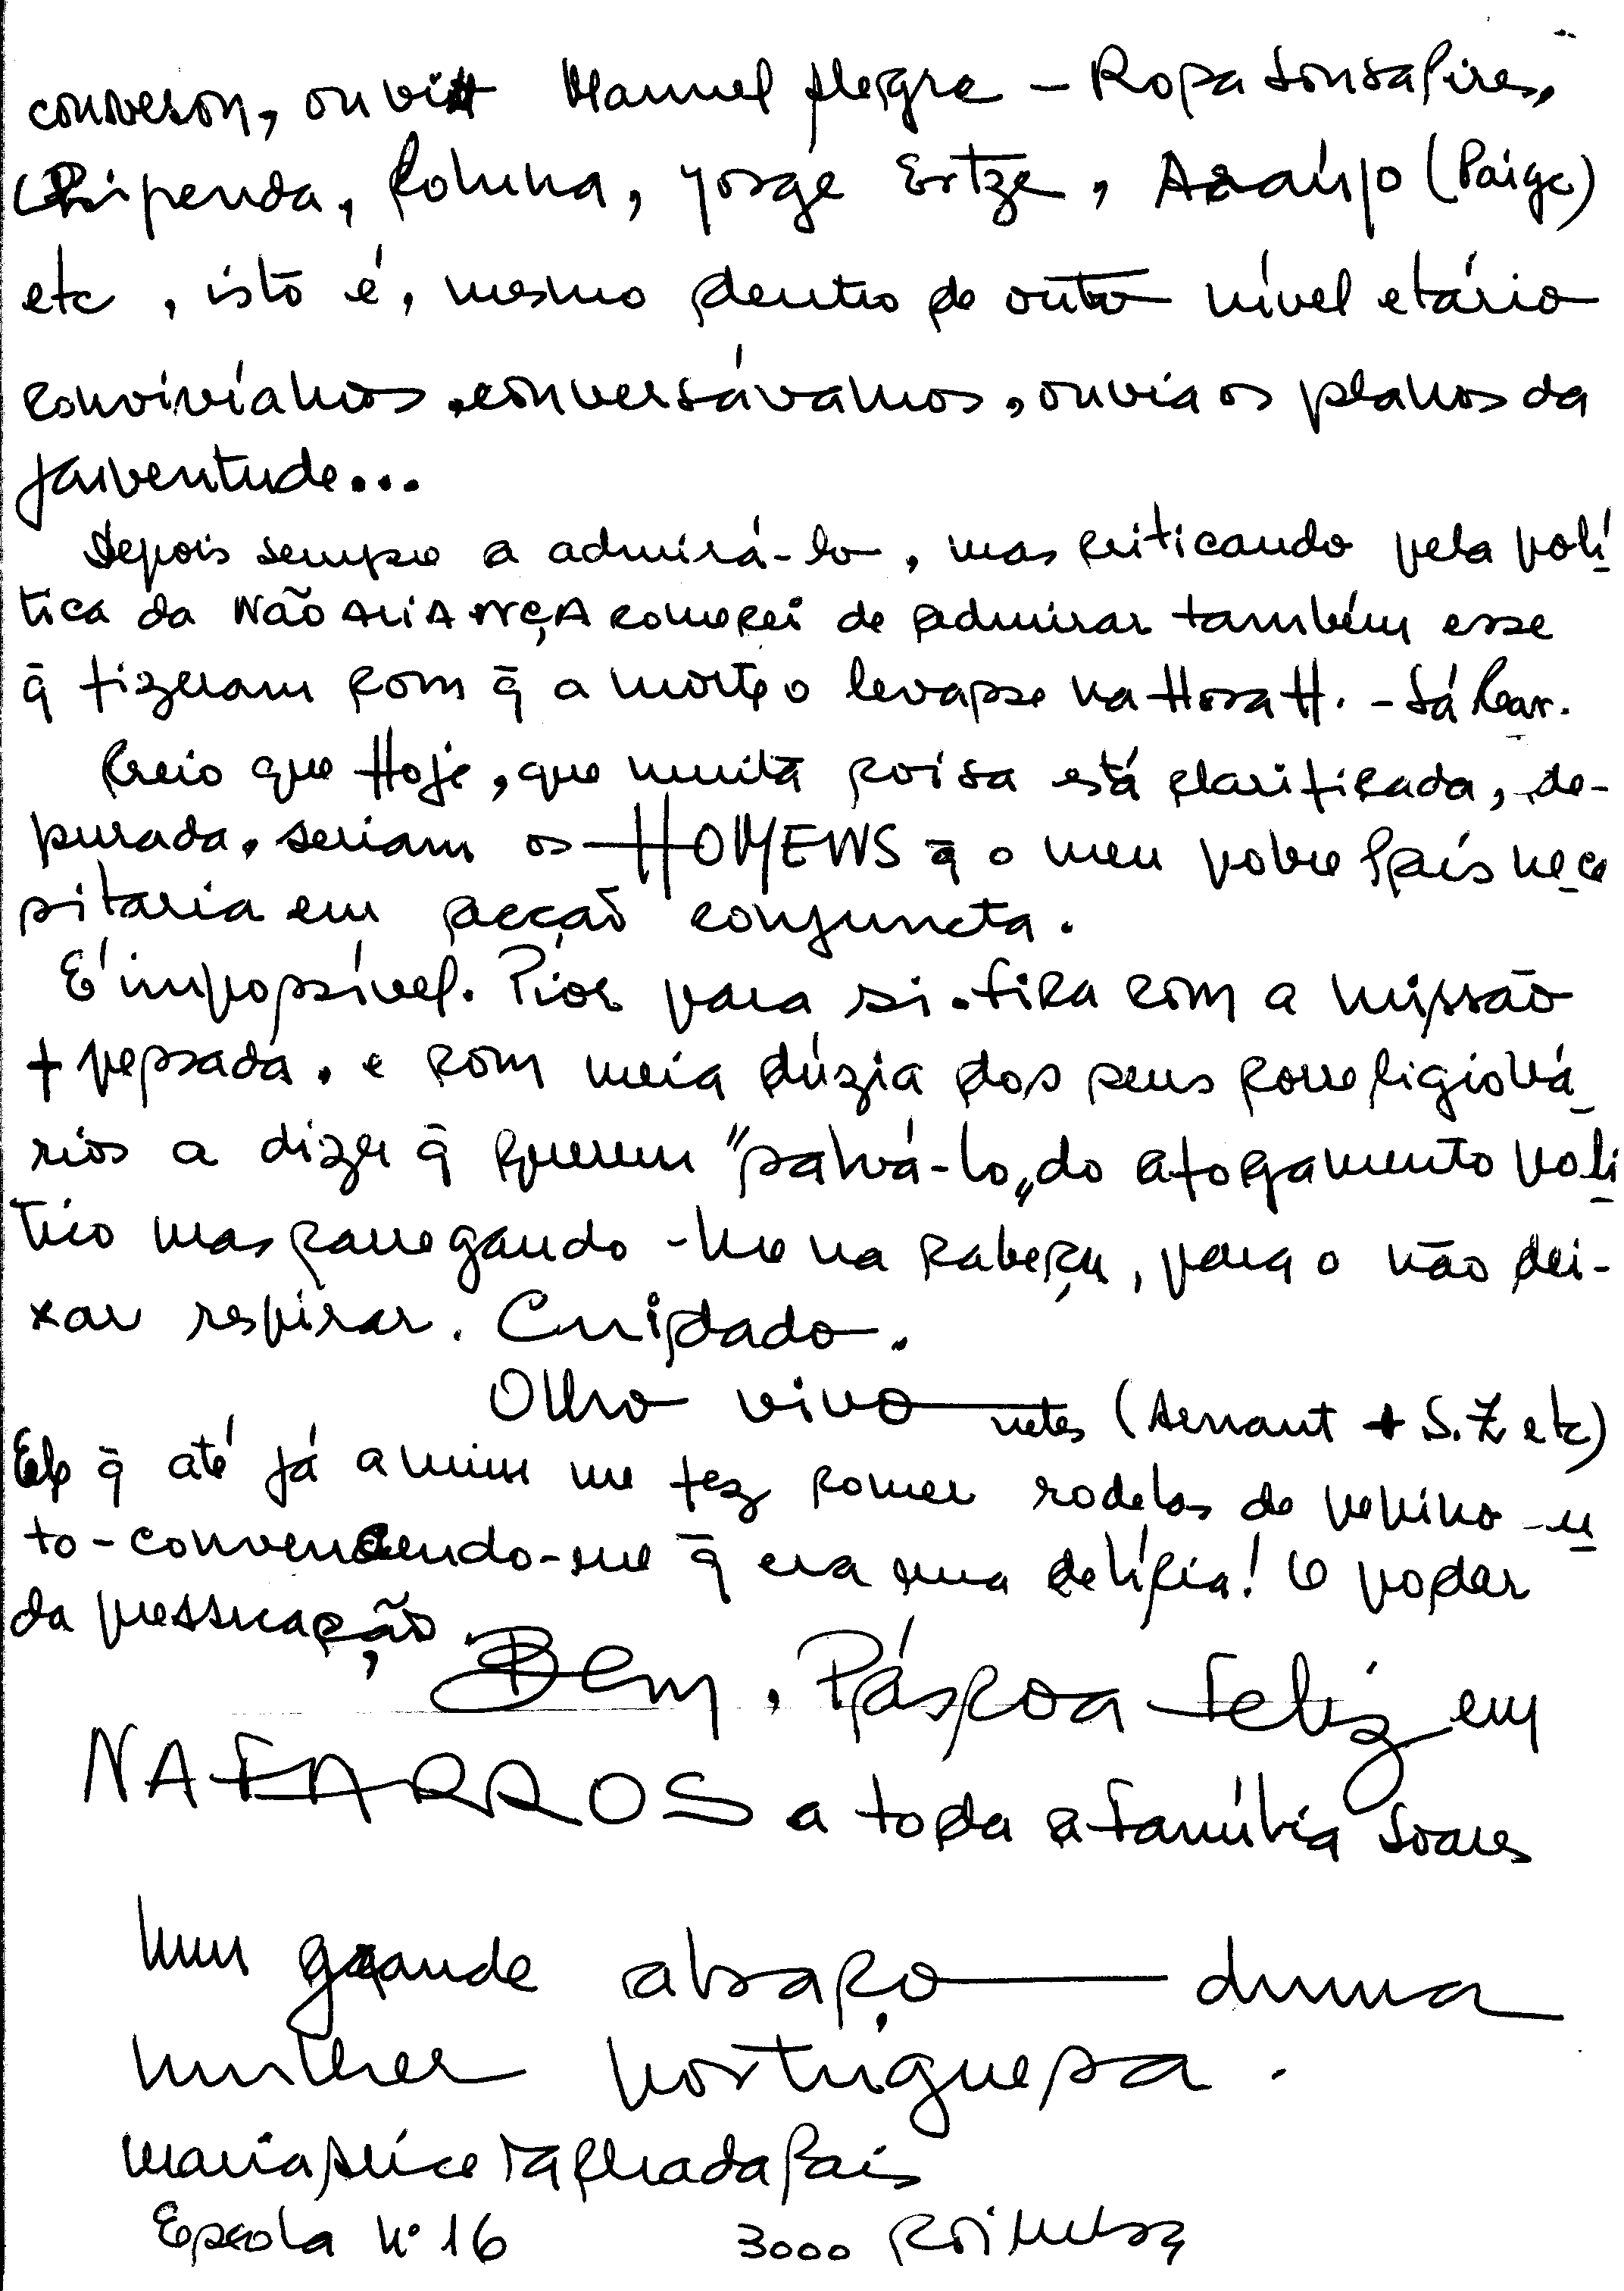 conversou, ouviu Manuel Alegre – Rosa
Chipenda, Coluna, Jorge Araújo (Paigc)
etc, isto é, mesmo dentro de outro nível etário
convivíamos, conversávamos, ouvia os planos da
juventude...
Depois sempre a admirá-lo, mas criticando pela polí
tica da NÃO ALIANÇA comecei de admirar também esse
q̄ fizeram com q̄ a morte o levasse na Hora H. - Sá Car.
Creio que Hoje, que muita coisa está clarificada, de-
purada, seriam os HOMENS q̄ o meu pobre País nece
sitaria em acção conjuncta.
É impossível. Pior para si. fica com a missão
+ pessada. e com meia dúzia dos seus correligioná
rios a dizer q̄ querem "salvá-lo" do afogamento polí
tico mas carregando-lhe na cabeça, para o não dei-
xar respirar. Cuidado.
Olho vivo (Arnaut + S.Z etc)
Ele q̄ até já a mim me fez comer rodelas de pepino
to-convencendo-me q̄ era uma delícia! O poder
da
Bem, Páscoa feliz em
NAFARROS a toda a família Soares
Num grande abraço duma
mulher portuguesa.
Maria Alice Pais
Escola Nº 16 3000 Coimbra